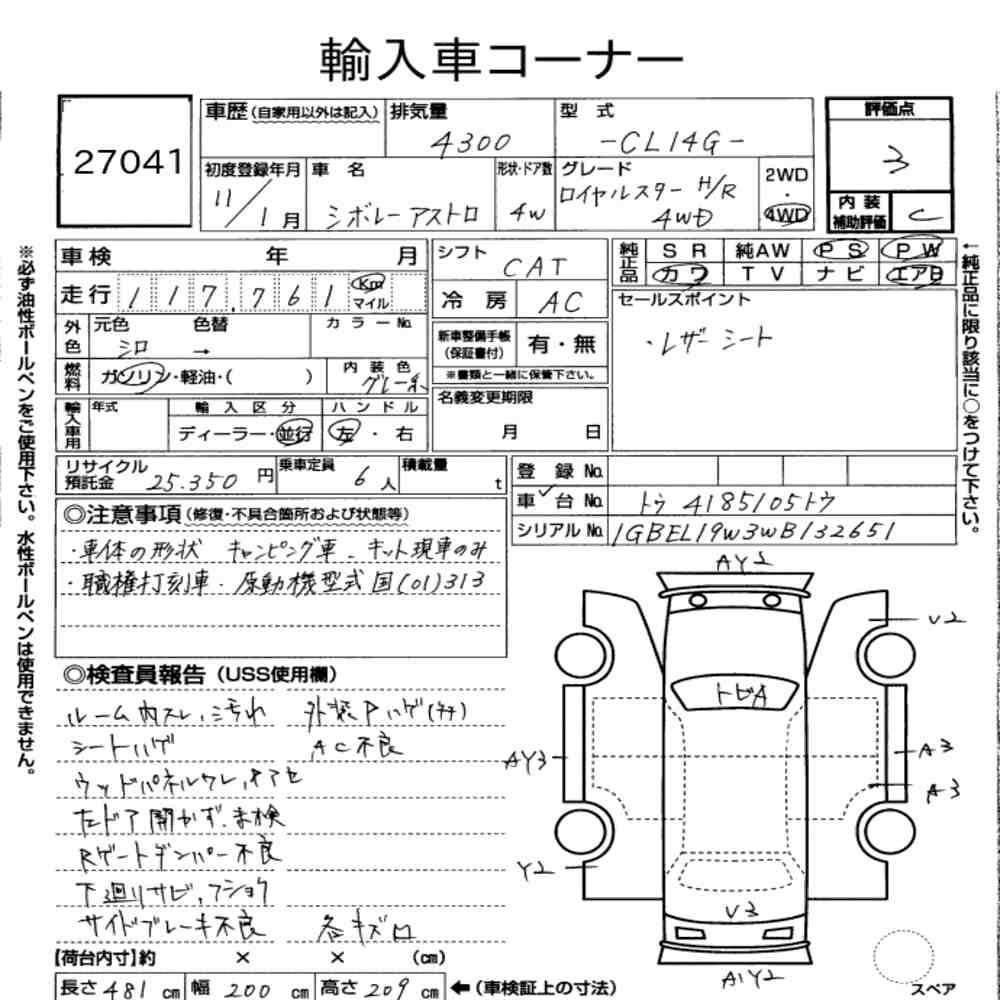 輸入車コーナー
27041
車歴(自家用以外は記入) 排気量 4300 型式 -CL14G-
評価点 3
初度登録年月 11/1月 車名 シボレーアストロ 形状・ドア数 4W グレード ロイヤルスター H/R 4WD 2WD・4WD
内装補助評価 C
※必ず油性ボールペンをご使用下さい。水性ボールペンは使用できません。
車検 年 月
走行 117,761 Km マイル
外色 元色 シロ 色替 → カラーNo.
燃料 ガソリン・軽油・( ) 内装色 グレー系
輸入車用 年式 輸入区分 ディーラー・並行 ハンドル 左・右
シフト CAT
冷房 AC
新車整備手帳(保証書付) 有・無
※書類と一緒に保管下さい。
名義変更期限
月 日
純正品 SR 純AW PS PW
カワ TV ナビ エアB
セールスポイント
・レザーシート
←純正品に限り該当に○をつけて下さい。
リサイクル預託金 25.350円 乗車定員 6人 積載量 t
登録No.
車台No. トウ4185105トウ
シリアルNo. 1GBEL19W3WB132651
◎注意事項(修復・不具合箇所および状態等)
・車体の形状 キャンピング車 - キット現車のみ
・職権打刻車・原動機型式国(01)313
◎検査員報告(USS使用欄)
ルーム内スレ,汚れ 外装Pハゲ
シートハゲ AC不良
ウッドパネルワレ,オアセ
左ドア開かず.未検
Rゲートダンパー不良
下廻りサビ,フショク
サイドブレーキ不良 各キズ
AY2
V2
トビA
AY3
A3
A3
Y2
V3
A1Y2
スペア
【荷台内寸】約 × × (cm)
長さ481cm 幅200cm 高さ209cm ←(車検証上の寸法)